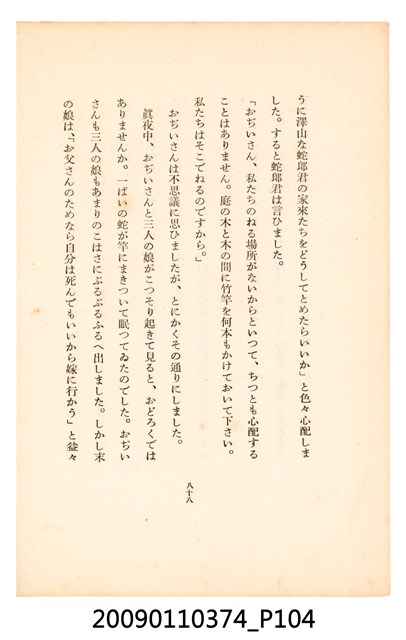 うに澤山な蛇郎君の家來たちをどうしてとめたらいいか」と色々心配しま
した。すると蛇郎君は言ひました。
「おぢいさん、私たちのねる場所がないからといつて、ちつとも心配する
ことはありません。庭の木と木の間に竹竿を何本もかけておいて下さい。
私たちはそこでねるのですから。」
おぢいさんは不思議に思ひましたが、とにかくその通りにしました。
眞夜中、おぢいさんと三人の娘がこつそり起きて見ると、おどろくでは
ありませんか。一ぱいの蛇が竿にまきついて眠つてゐたのでした。おぢい
さんも三人の娘もあまりのこはさにぶるぶるふるへ出しました。しかし末
の娘は、「お父さんのためなら自分は死んでもいいから嫁に行かう」と益々
八十八
20090110374_P104